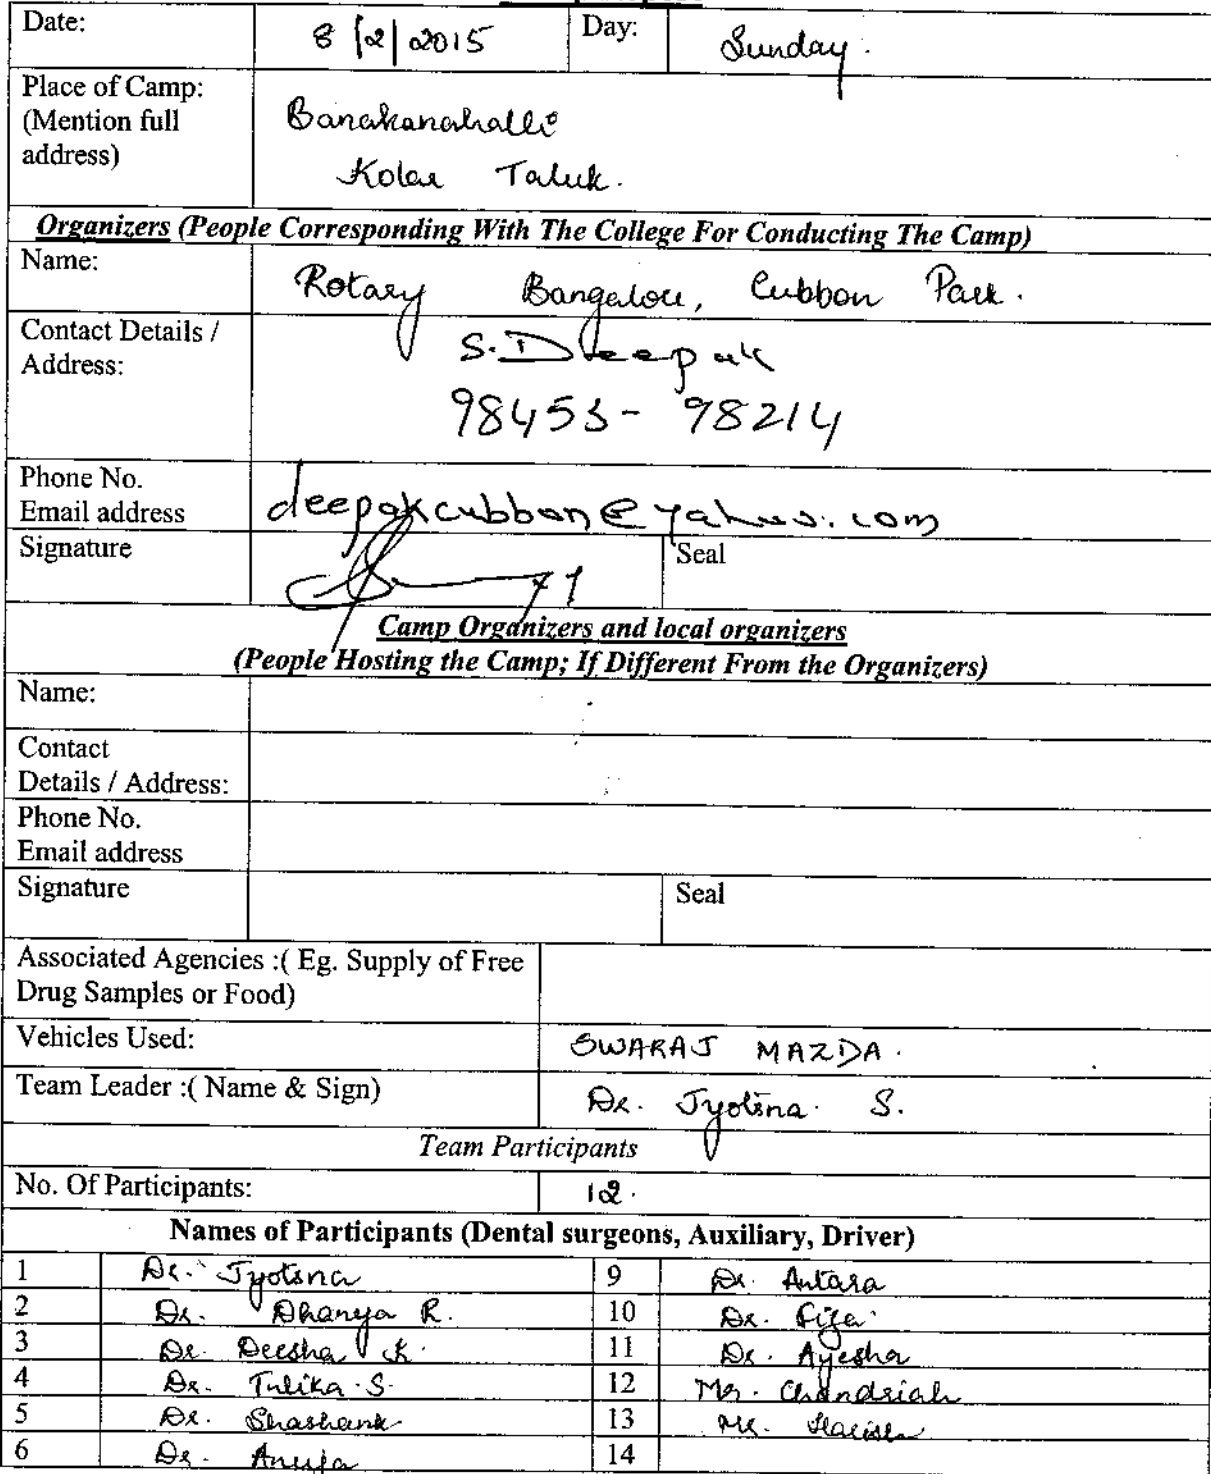 Date: 8/2/2015 Day: Sunday.
Place of Camp:
(Mention full
address)
Banakanahalli
Kolar Taluk.
Organizers (People Corresponding With The College For Conducting The Camp)
Name: Rotary Bangalore, Cubbon Park.
Contact Details /
Address:
S. Deepak
98453 - 98214
Phone No.
Email address deepakcubbon@yahoo.com
Signature Seal
Camp Organizers and local organizers
(People Hosting the Camp; If Different From the Organizers)
Name:
Contact
Details / Address:
Phone No.
Email address
Signature Seal
Associated Agencies :( Eg. Supply of Free
Drug Samples or Food)
Vehicles Used: SWARAJ MAZDA.
Team Leader :( Name & Sign) Dr. Jyotsna. S.
Team Participants
No. Of Participants: 12.
Names of Participants (Dental surgeons, Auxiliary, Driver)
1 Dr. Jyotsna 9 Dr. Antara
2 Dr. Dhanya R. 10 Dr. Fiza
3 Dr. Deesha K. 11 Dr. Ayesha
4 Dr. Tulika S. 12 Mr. Chandriah
5 Dr. Shashank 13 Mr. Harish
6 Dr. Anuja 14